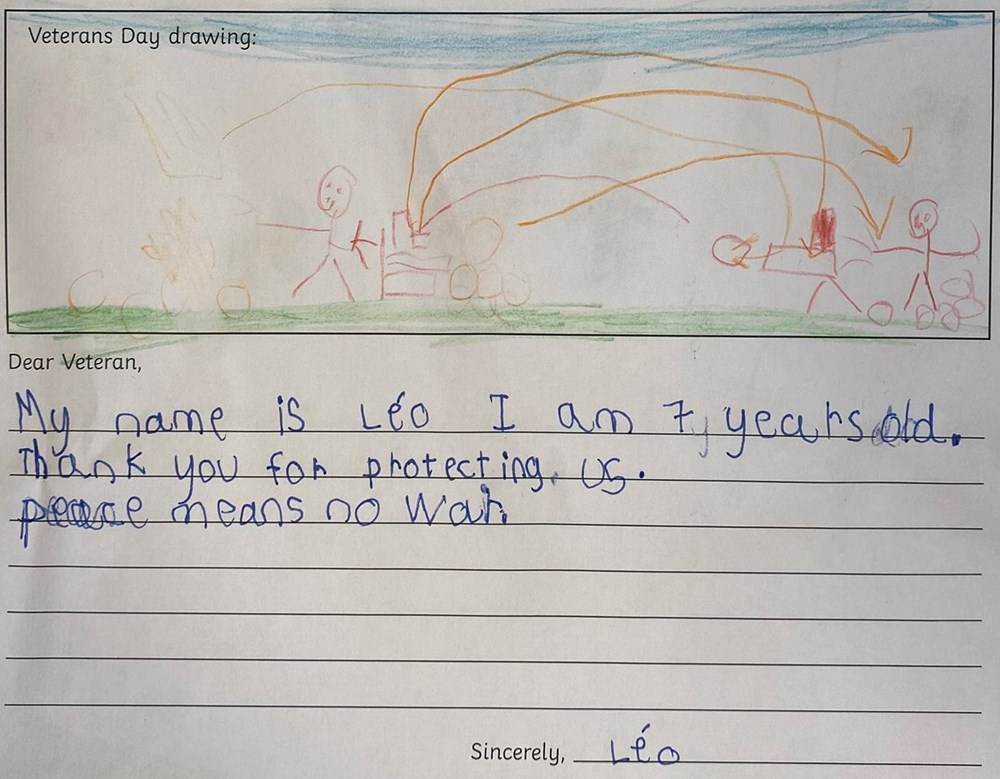 Veterans Day drawing:
Dear Veteran,
My name is Léo I am 7, years old.
Thank you for protecting. us.
peace means no war.
Sincerely, Léo